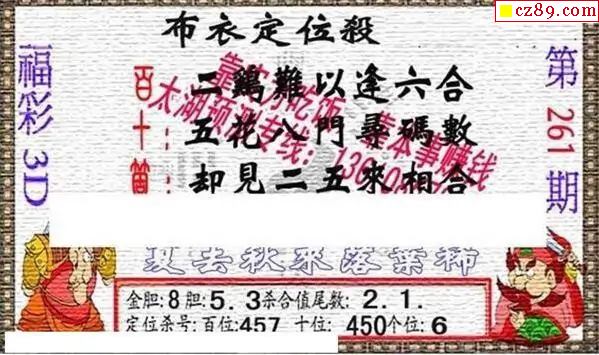 cz89.com
布衣定位殺
福彩3D
第261期
百: 二鷄難以逢六合
十: 五花八門尋碼數
箇: 却見二五來相合
靠实力吃饭 靠本事赚钱
太湖预测专线:136
夏去秋來落葉稀
金胆:8胆:5.3杀合值尾数:2.1.
定位杀号:百位:457 十位:450个位:6